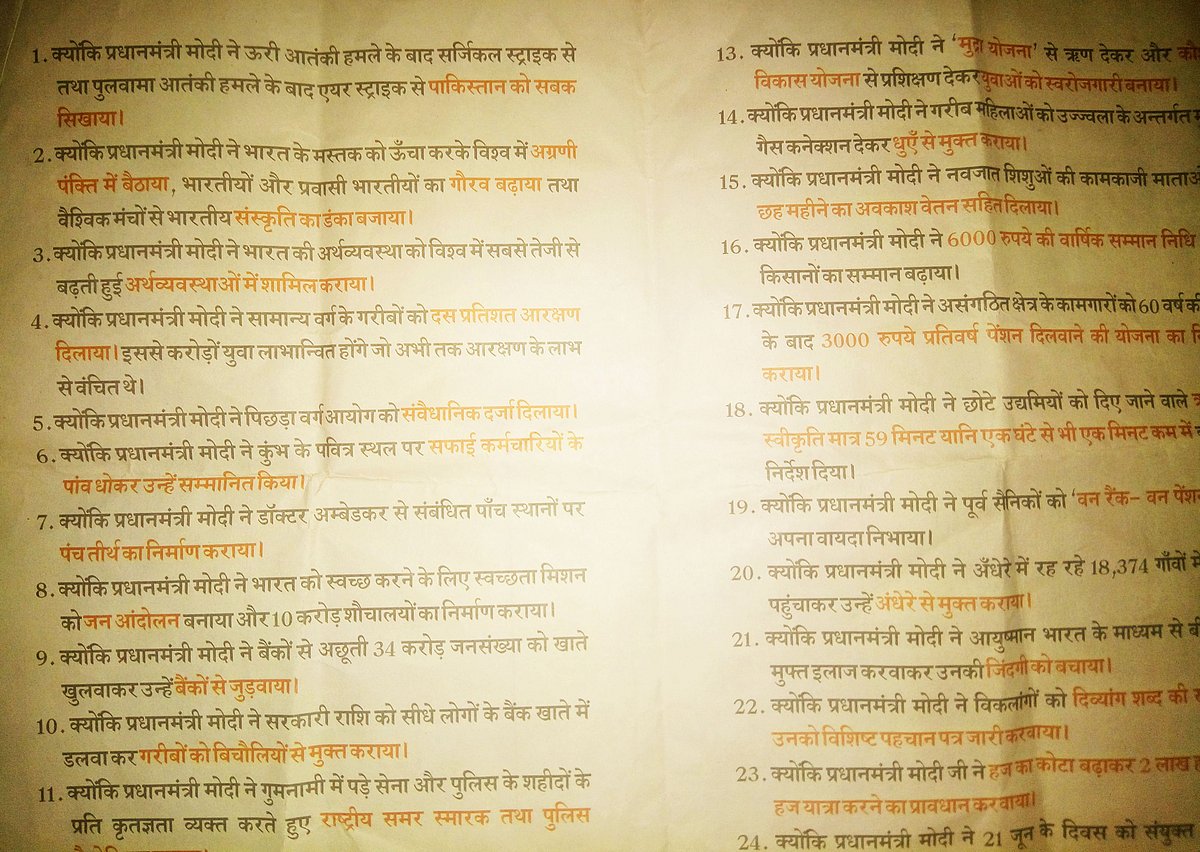 1. क्योंकि प्रधानमंत्री मोदी ने ऊरी आतंकी हमले के बाद सर्जिकल स्ट्राइक से
तथा पुलवामा आतंकी हमले के बाद एयर स्ट्राइक से पाकिस्तान को सबक
सिखाया।
2. क्योंकि प्रधानमंत्री मोदी ने भारत के मस्तक को ऊँचा करके विश्व में अग्रणी
पंक्ति में बैठाया, भारतीयों और प्रवासी भारतीयों का गौरव बढ़ाया तथा
वैश्विक मंचों से भारतीय संस्कृति का डंका बजाया।
3. क्योंकि प्रधानमंत्री मोदी ने भारत की अर्थव्यवस्था को विश्व में सबसे तेजी से
बढ़ती हुई अर्थव्यवस्थाओं में शामिल कराया।
4. क्योंकि प्रधानमंत्री मोदी ने सामान्य वर्ग के गरीबों को दस प्रतिशत आरक्षण
दिलाया। इससे करोड़ों युवा लाभान्वित होंगे जो अभी तक आरक्षण के लाभ
से वंचित थे।
5. क्योंकि प्रधानमंत्री मोदी ने पिछड़ा वर्ग आयोग को संवैधानिक दर्जा दिलाया।
6. क्योंकि प्रधानमंत्री मोदी ने कुंभ के पवित्र स्थल पर सफाई कर्मचारियों के
पांव धोकर उन्हें सम्मानित किया।
7. क्योंकि प्रधानमंत्री मोदी ने डॉक्टर अम्बेडकर से संबंधित पाँच स्थानों पर
पंच तीर्थ का निर्माण कराया।
8. क्योंकि प्रधानमंत्री मोदी ने भारत को स्वच्छ करने के लिए स्वच्छता मिशन
को जन आंदोलन बनाया और 10 करोड़ शौचालयों का निर्माण कराया।
9. क्योंकि प्रधानमंत्री मोदी ने बैंकों से अछूती 34 करोड़ जनसंख्या को खाते
खुलवाकर उन्हें बैंकों से जुड़वाया।
10. क्योंकि प्रधानमंत्री मोदी ने सरकारी राशि को सीधे लोगों के बैंक खाते में
डलवा कर गरीबों को बिचौलियों से मुक्त कराया।
11. क्योंकि प्रधानमंत्री मोदी ने गुमनामी में पड़े सेना और पुलिस के शहीदों के
प्रति कृतज्ञता व्यक्त करते हुए राष्ट्रीय समर स्मारक तथा पुलिस
13. क्योंकि प्रधानमंत्री मोदी ने 'मुद्रा योजना' से ऋण देकर और
विकास योजना से प्रशिक्षण देकर युवाओं को स्वरोजगारी बनाया।
14. क्योंकि प्रधानमंत्री मोदी ने गरीब महिलाओं को उज्ज्वला के अन्तर्गत
गैस कनेक्शन देकर धुएँ से मुक्त कराया।
15. क्योंकि प्रधानमंत्री मोदी ने नवजात शिशुओं की कामकाजी
छह महीने का अवकाश वेतन सहित दिलाया।
16. क्योंकि प्रधानमंत्री मोदी ने 6000 रुपये की वार्षिक सम्मान निधि
किसानों का सम्मान बढ़ाया।
17. क्योंकि प्रधानमंत्री मोदी ने असंगठित क्षेत्र के कामगारों को 60 वर्ष की
के बाद 3000 रुपये प्रतिवर्ष पेंशन दिलवाने की योजना का
कराया।
18. क्योंकि प्रधानमंत्री मोदी ने छोटे उद्यमियों को दिए जाने वाले
स्वीकृति मात्र 59 मिनट यानि एक घंटे से भी एक मिनट कम में
निर्देश दिया।
19. क्योंकि प्रधानमंत्री मोदी ने पूर्व सैनिकों को 'वन रैंक- वन
अपना वायदा निभाया।
20. क्योंकि प्रधानमंत्री मोदी ने अँधेरे में रह रहे 18,374 गाँवों में
पहुंचाकर उन्हें अंधेरे से मुक्त कराया।
21. क्योंकि प्रधानमंत्री मोदी ने आयुष्मान भारत के माध्यम से
मुफ्त इलाज करवाकर उनकी जिंदगी को बचाया।
22. क्योंकि प्रधानमंत्री मोदी ने विकलांगों को दिव्यांग शब्द की
उनको विशिष्ट पहचान पत्र जारी करवाया।
23. क्योंकि प्रधानमंत्री मोदी जी ने हज का कोटा बढ़ाकर 2 लाख
हज यात्रा करने का प्रावधान करवाया।
24. क्योंकि प्रधानमंत्री मोदी ने 21 जून के दिवस को संयुक्त